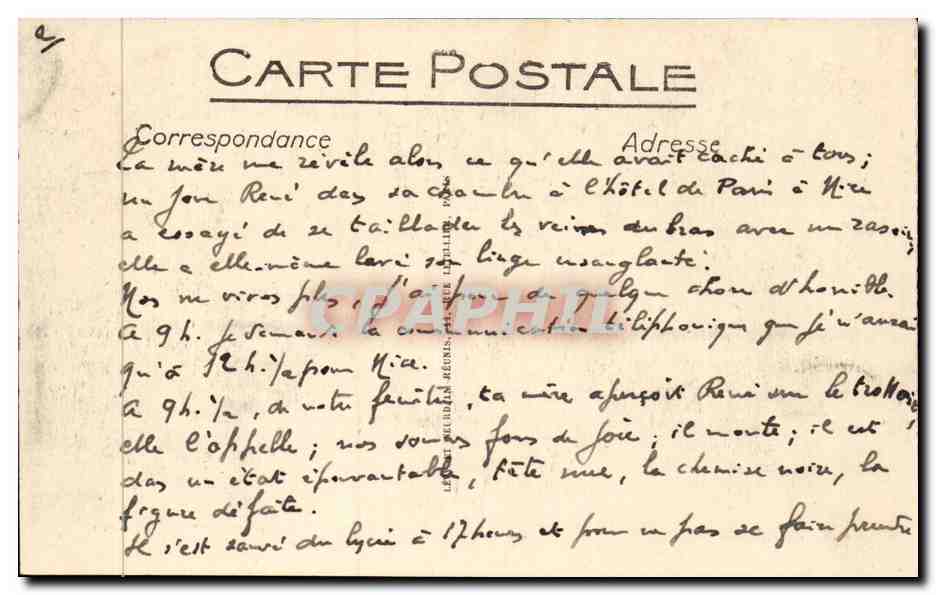 2/
CARTE POSTALE
Correspondance
Adresse
Ta mère me révèle alors ce qu'elle avait caché à tous ;
un jour René dans sa chambre à l'hôtel de Paris à Nice
a essayé de se taillader les veines du bras avec un rasoir,
elle a elle-même lavé son linge ensanglanté.
Nos ne vivons plus, j'ai peur de quelque chose d'horrible.
A 9h. je demande la communication téléphonique que je n'aurai
qu'à 12h.1/2 pour Nice.
A 9h.1/2, de notre fenêtre, ta mère aperçoit René sur le trottoir,
elle l'appelle ; nos sommes fous de joie ; il monte ; il est
dans un état épouvantable, tête nue, la chemise noire, la
figure défaite.
Il s'est sauvé du lycée à 17 heures et pour ne pas se faire prendre
LÉVY ET NEURDEIN RÉUNIS, 44, RUE LETELLIER, PARIS
CPAPHIL